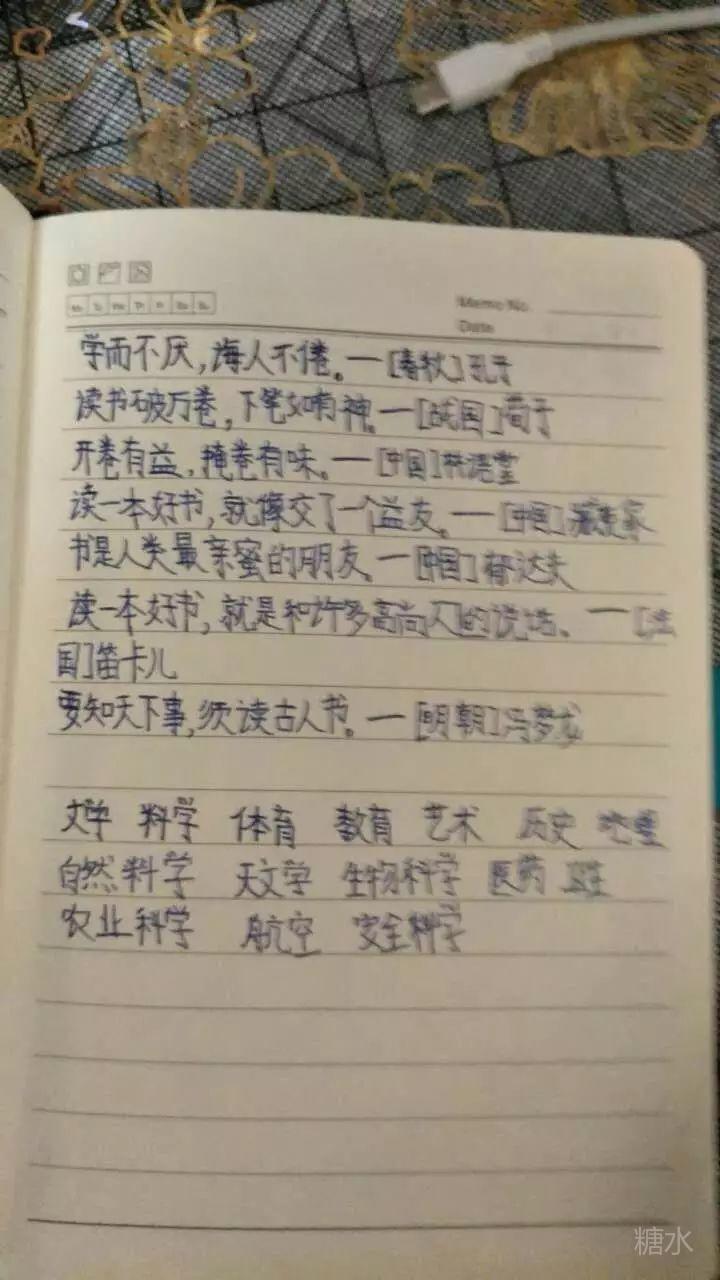 Memo No.
Date
学而不厌,海人不倦。—[春秋]孔子
读书破万卷,下笔如有神。—[战国]荀子
开卷有益,掩卷有味。—[中国]林语堂
读一本好书,就像交了一个益友。—[中国]臧克家
书是人类最亲蜜的朋友。—[中国]郁达夫
读一本好书,就是和许多高尚人的说话。—[法
国]笛卡儿
要知天下事,须读古人书。—[明朝]冯梦龙
文学 科学 体育 教育 艺术 历史 地理
自然科学 天文学 生物科学 医药 卫生
农业科学 航空 安全科学
糖水